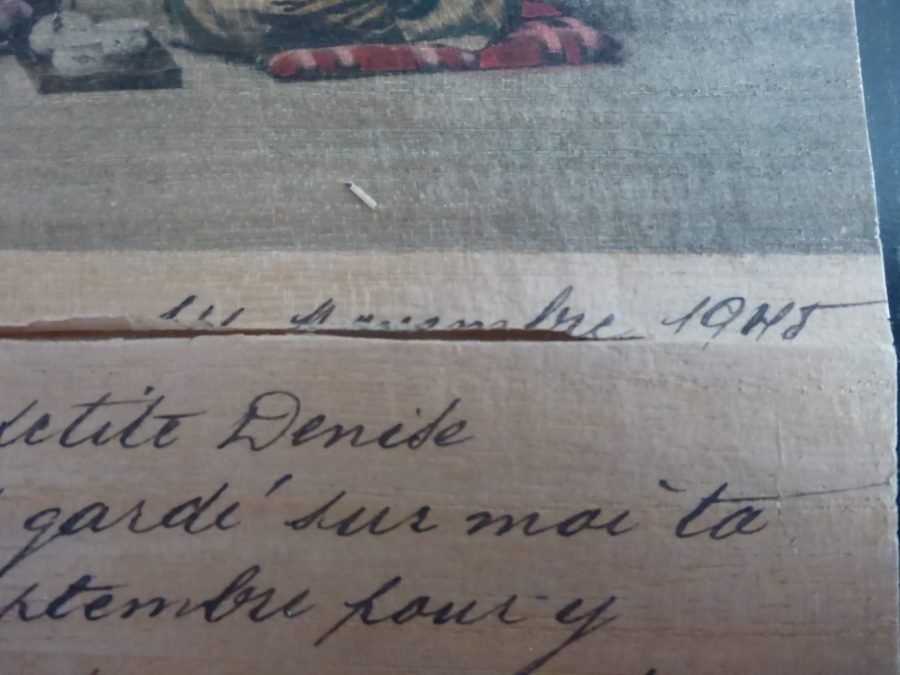 1er Novembre 1945
petite Denise
gardé sur moi ta
ptembre pour y